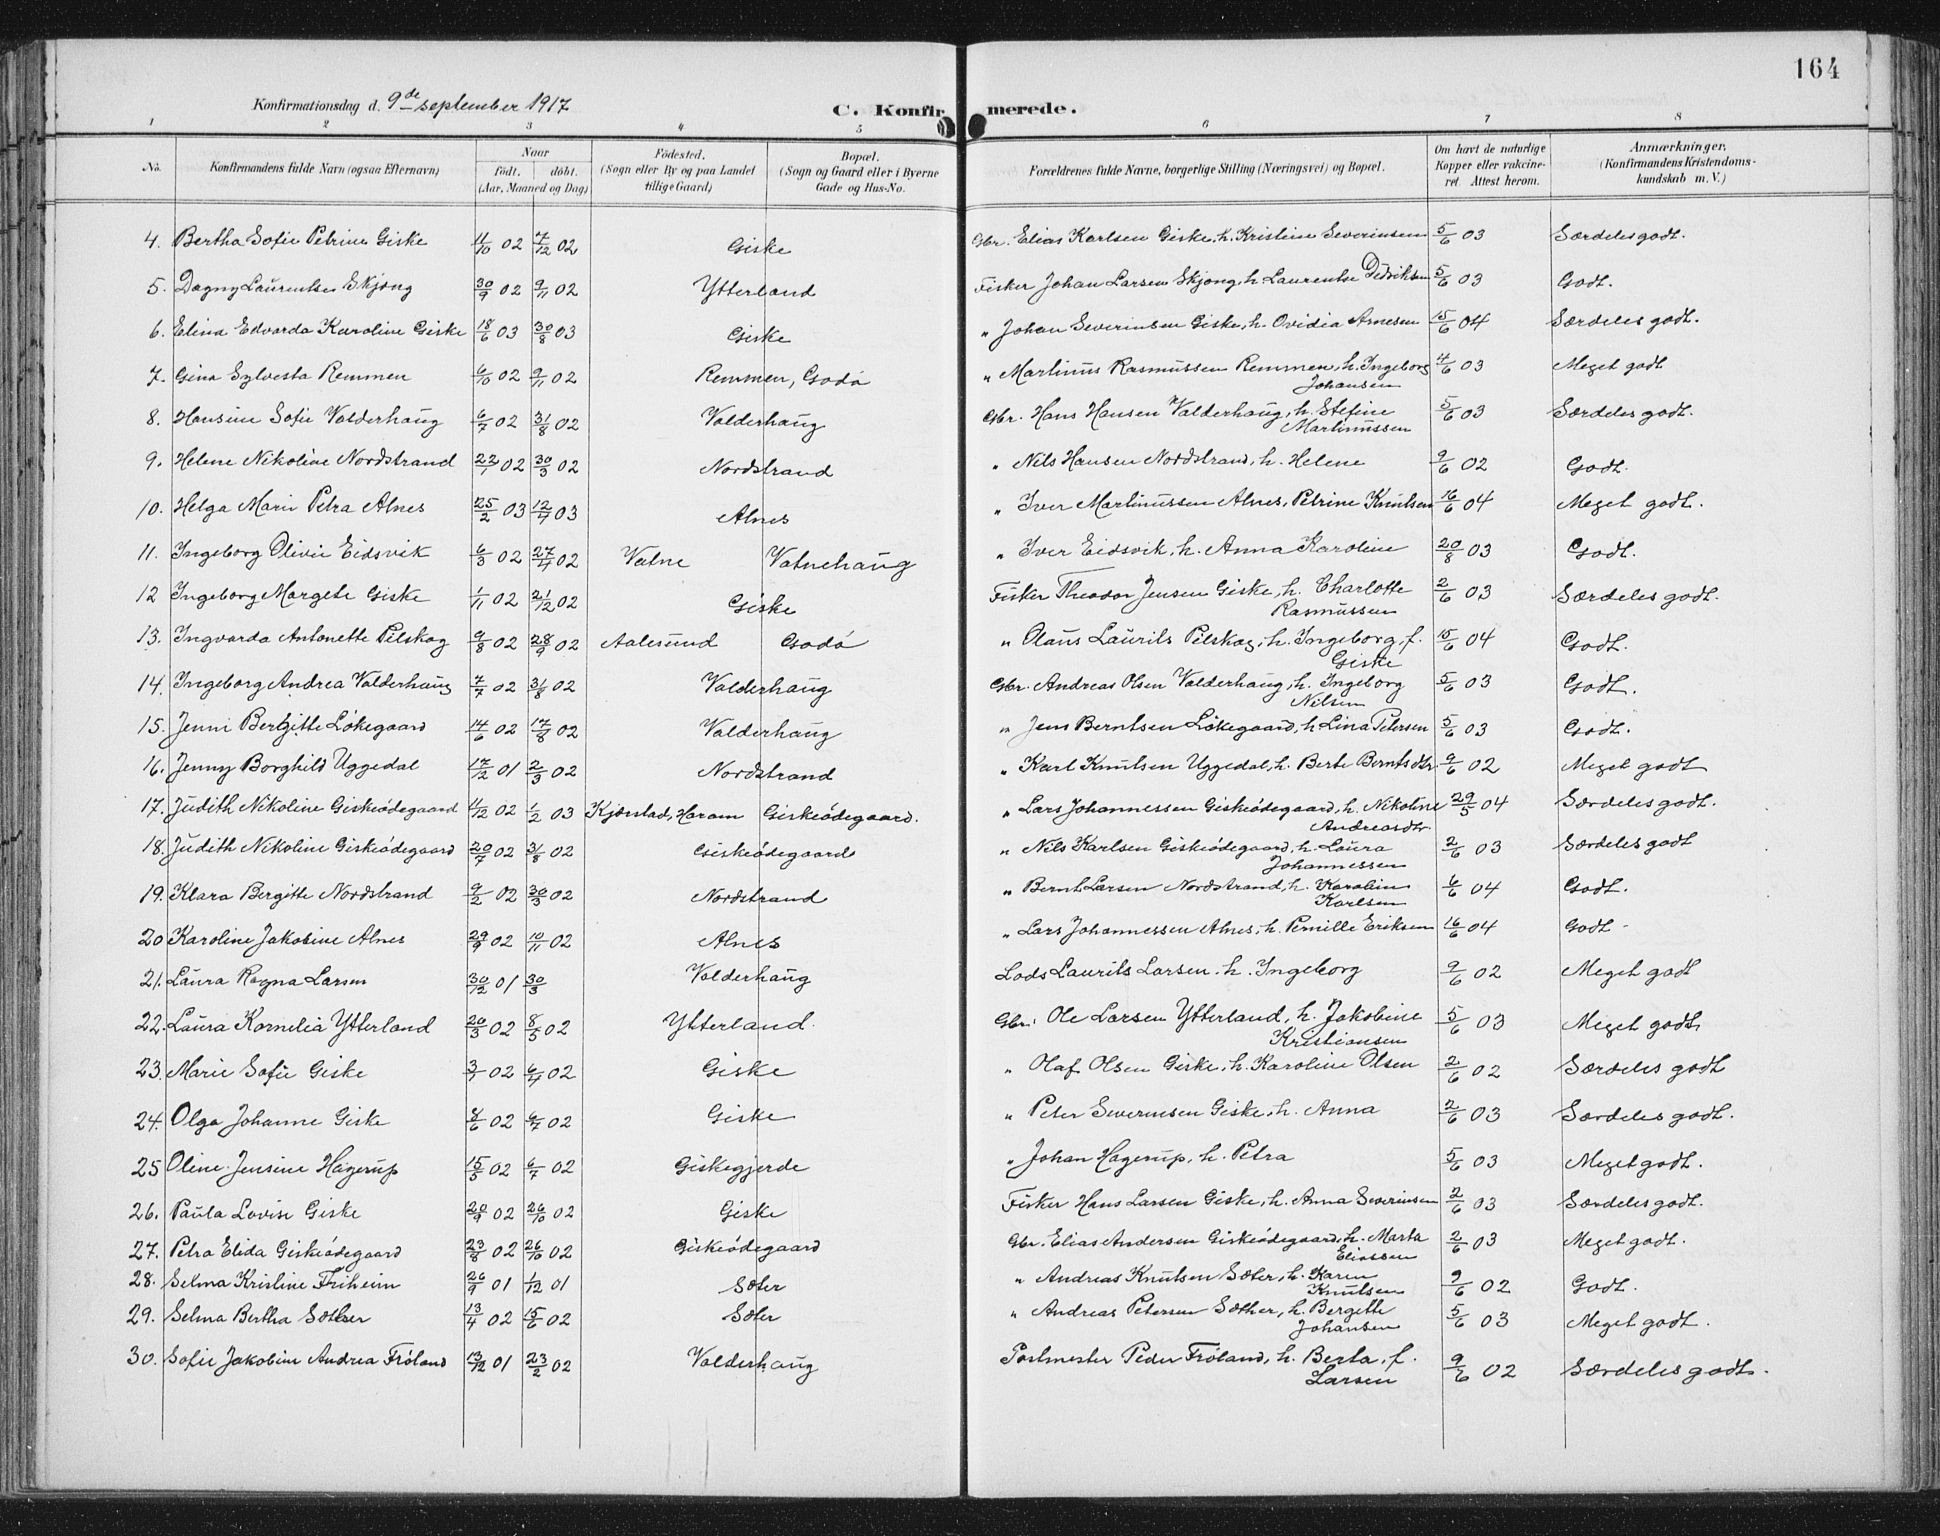 164
Konfirmationsdag d. 9de september 1917
C. Konfirmerede.
1 2 3 4 5 6 7 8
No. Konfirmandens fulde Navn (ogsaa Efternavn) Naar født. døbt. (Aar, Maaned og Dag) Fødested. (Sogn eller By og paa Landet tillige Gaard) Bopæl. (Sogn og Gaard eller i Byerne Gade og Hus-No.) Forældrenes fulde Navne, borgerlige Stilling (Næringsvei) og Bopæl. Om havt de naturlige Kopper eller vakcineret Attest herom. Anmærkninger. (Konfirmandens Kristendomskundskab m. V.)
4. Bertha Sofie Petrine Giske 11/10 02 7/12 02 Giske Gbr. Elias Karlsen Giske, h. Kristine Severinsen 5/6 03 Særdeles godt.
5. Dagny Laurentse Skjong 30/9 02 9/11 02 Ytterland Fisker Johan Larsen Skjong, h. Laurentse Didriksen 5/6 03 Godt.
6. Elina Edvarda Karoline Giske 18/6 03 30/8 03 Giske " Johan Severinsen Giske, h. Ovidia Arnesen 15/6 04 Særdeles godt.
7. Gina Sylvesta Remmen 6/10 02 9/11 02 Remmen, Godø " Martinus Rasmussen Remmen, h. Ingeborg 4/6 03 Meget godt
Johansen
8. Hansine Sofie Valderhaug 6/7 02 31/8 02 Valderhaug Gbr. Hans Hansen Valderhaug, h. Stefine 5/6 03 Særdeles godt.
Martinussen
9. Helene Nikoline Nordstrand 22/1 02 30/3 02 Nordstrand " Nils Hansen Nordstrand, h. Helene 9/6 02 Godt.
10. Helga Marie Petra Alnes 25/2 03 12/4 03 Alnes " Iver Martinussen Alnes, Petrine Knutsen 16/6 04 Meget godt.
11. Ingeborg Olivie Eidsvik 6/3 02 27/4 02 Vatne Vatnehaug " Iver Eidsvik, h. Anna Karoline 20/8 03 Godt.
12 Ingeborg Margete Giske 1/11 02 21/12 02 Giske Fisker Theodor Jensen Giske, h. Charlotte 2/6 03 Særdeles godt.
Rasmussen
13. Ingvarda Antonette Pilskog 9/8 02 28/9 02 Aalesund Godø " Olaus Laurits Pilskog, h. Ingeborg, f. 15/6 04 Godt.
Giske
14. Ingeborg Andrea Valderhaug 7/7 02 31/8 02 Valderhaug Gbr. Andreas Olsen Valderhaug, h. Ingeborg 5/6 03 Godt.
Nilsen
15. Jenni Bergitte Løkegaard 14/6 02 17/8 02 Valderhaug " Jens Berntsen Løkegaard, h Lina Petersen 5/6 03 Godt.
16. Jenny Borghild Uggedal 17/12 01 2/3 02 Nordstrand " Karl Knutsen Uggedal, h. Berte Berntsdtr 9/6 02 Meget godt
17. Judith Nikoline Giskeødegaard 4/12 02 1/2 03 Kjørstad, Haram Giskeødegaard. " Lars Johannessen Giskeødegaard, h. Nikoline 29/5 04 Særdeles godt.
Andreasdtr.
18. Judith Nikoline Giskeødegaard 20/7 02 31/8 02 Giskeødegaard " Nils Karlsen Giskeødegaard, h. Laura 2/6 03 Særdeles godt
Johannessen
19. Klara Bergitte Nordstrand 9/2 02 30/3 02 Nordstrand " Bernt Larsen Nordstrand, h. Karoline 6/6 04 Godt.
Karlsen
20 Karoline Jakobine Alnes 29/9 02 10/11 02 Alnes " Lars Johannessen Alnes, h. Pernille Eriksen 16/6 04 Godt
21. Laura Ragna Larsen 30/12 01 30/3 Valderhaug Lods Laurits Larsen. h. Ingeborg 9/6 02 Meget godt
22. Laura Kornelia Ytterland 20/3 02 8/5 02 Ytterland. Gbr. Ole Larsen Ytterland, h. Jakobine 5/6 03 Meget godt
Kristiansen
23. Marie Sofie Giske 3/1 02 6/4 02 Giske " Olaf Olsen Giske, h. Karoline Olsen 2/6 02 Særdeles godt
24. Olga Johanne Giske 8/6 02 6/7 02 Giske " Peter Severinsen Giske, h. Anna 2/6 03 Særdeles godt.
25 Oline Jensine Hagerup 15/5 02 6/7 02 Giskegjerde " Johan Hagerup, h. Petra 5/6 03 Meget godt.
26. Paula Lovise Giske 20/9 02 26/10 02 Giske Fisker Hans Larsen Giske, h. Anna Severinsen 2/6 03 Særdeles godt.
27. Petra Elida Giskeødegaard 23/8 02 26/10 02 Giskeødegaard Gbr. Elias Andersen Giskeødegaard, h. Marta 2/6 03 Meget godt.
Eliassen
28. Selma Kristine Friheim 26/9 01 1/12 01 Sæter " Andreas Knutsen Sæter, h. Karen 9/6 02 Godt.
Knutsen
29. Selma Bertha Sæther 13/4 02 15/6 02 Sæter " Andreas Petersen Sæther, h. Bergitte 5/6 03 Meget godt.
Johansen
30. Sofie Jakobine Andrea Frøland 13/12 01 23/2 02 Valderhaug Postmester Peder Frøland, h. Berta, f. 9/6 02 Særdeles godt.
Larsen